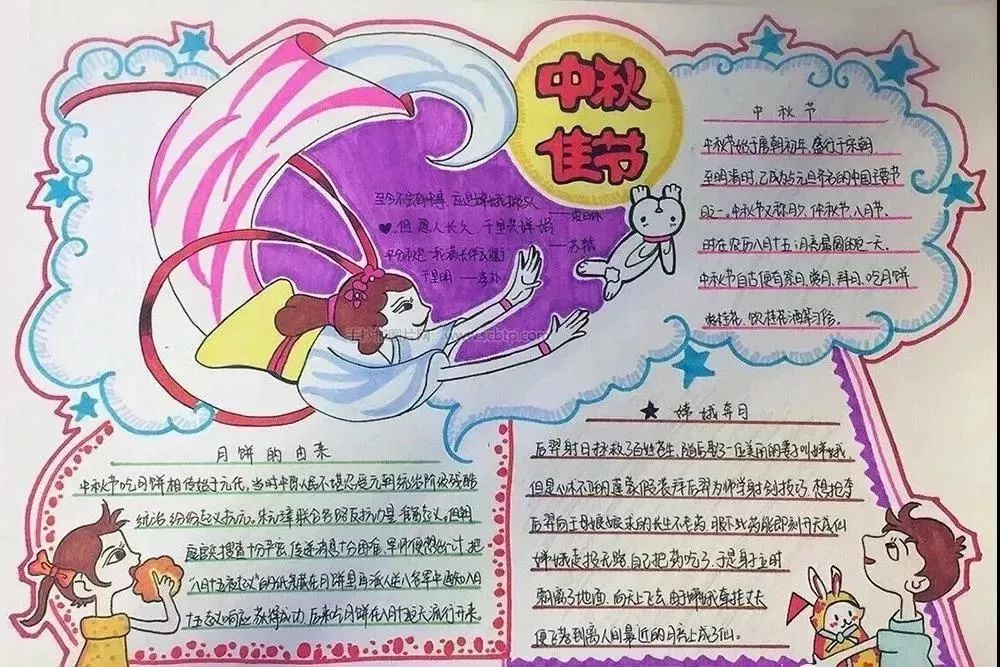 中秋
佳节
中秋节
中秋节始于唐朝初年,盛行于宋朝
至明清时,已成为与元旦齐名的中国主要节
日之一。中秋节又称月夕、仲秋节、八月节。
时在农历八月十五;月亮最圆的一天。
中秋节自古便有祭月、赏月、拜月、吃月饼
赏桂花、饮桂花酒等习俗。
但愿人长久 千里共婵娟
——苏轼
手抄报图片网 www.scbtp.com
月饼的由来
中秋节吃月饼相传始于元代,当时中原人民不堪忍受元朝统治阶级残酷
统治,纷纷起义抗元。朱元璋联合各路反抗力量准备起义。但朝
庭官兵搜查十分严密,传递消息十分困难,军师便想出一计,把
“八月十五夜起义”的纸条藏在月饼里,再派人送八各军中通知八月
十五起义响应,获得成功,后来吃月饼在八月十五天流行开来。
★ 嫦娥奔月
后羿射日拯救了百姓苍生,随后娶了一位美丽的妻子叫嫦娥,
但是心术不明的蓬蒙假装拜后羿为师学射剑技巧,想抢夺
后羿向王母娘娘求的长生不老药,服下此药能即刻升天成仙
嫦娥走投无路,自己把药吃了,于是身立时
飘离了地面,向天上飞去,由于嫦娥牵挂丈夫
便飞落到离人间最近的月亮上成了仙。